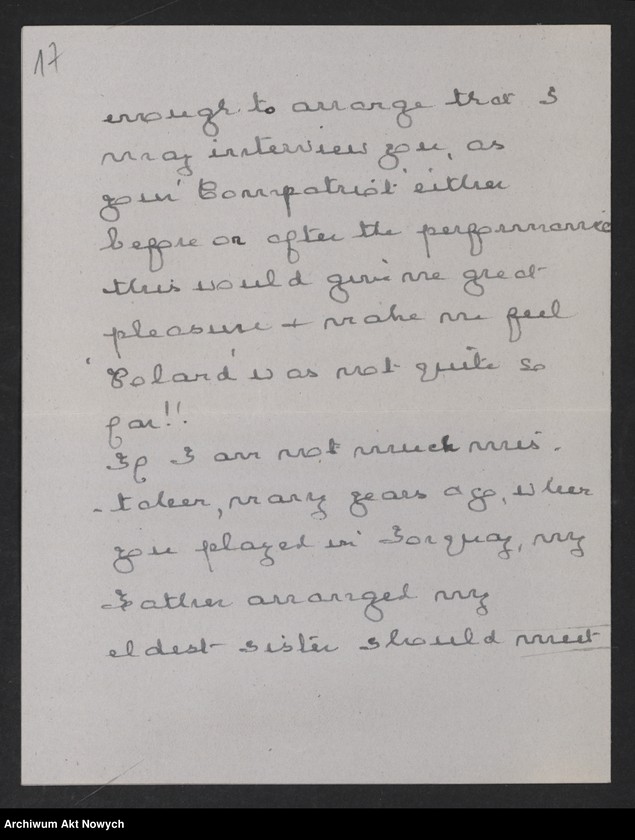 17
enough to arrange that I
may interview you, as
your 'Compatriot' either
before or after the performance
this would give me great
pleasure + make me feel
'Poland' was not quite so
far!!
If I am not much mis-
-taken, many years ago, when
you played in Torquay, my
Father arranged my
eldest sister should meet
Archiwum Akt Nowych